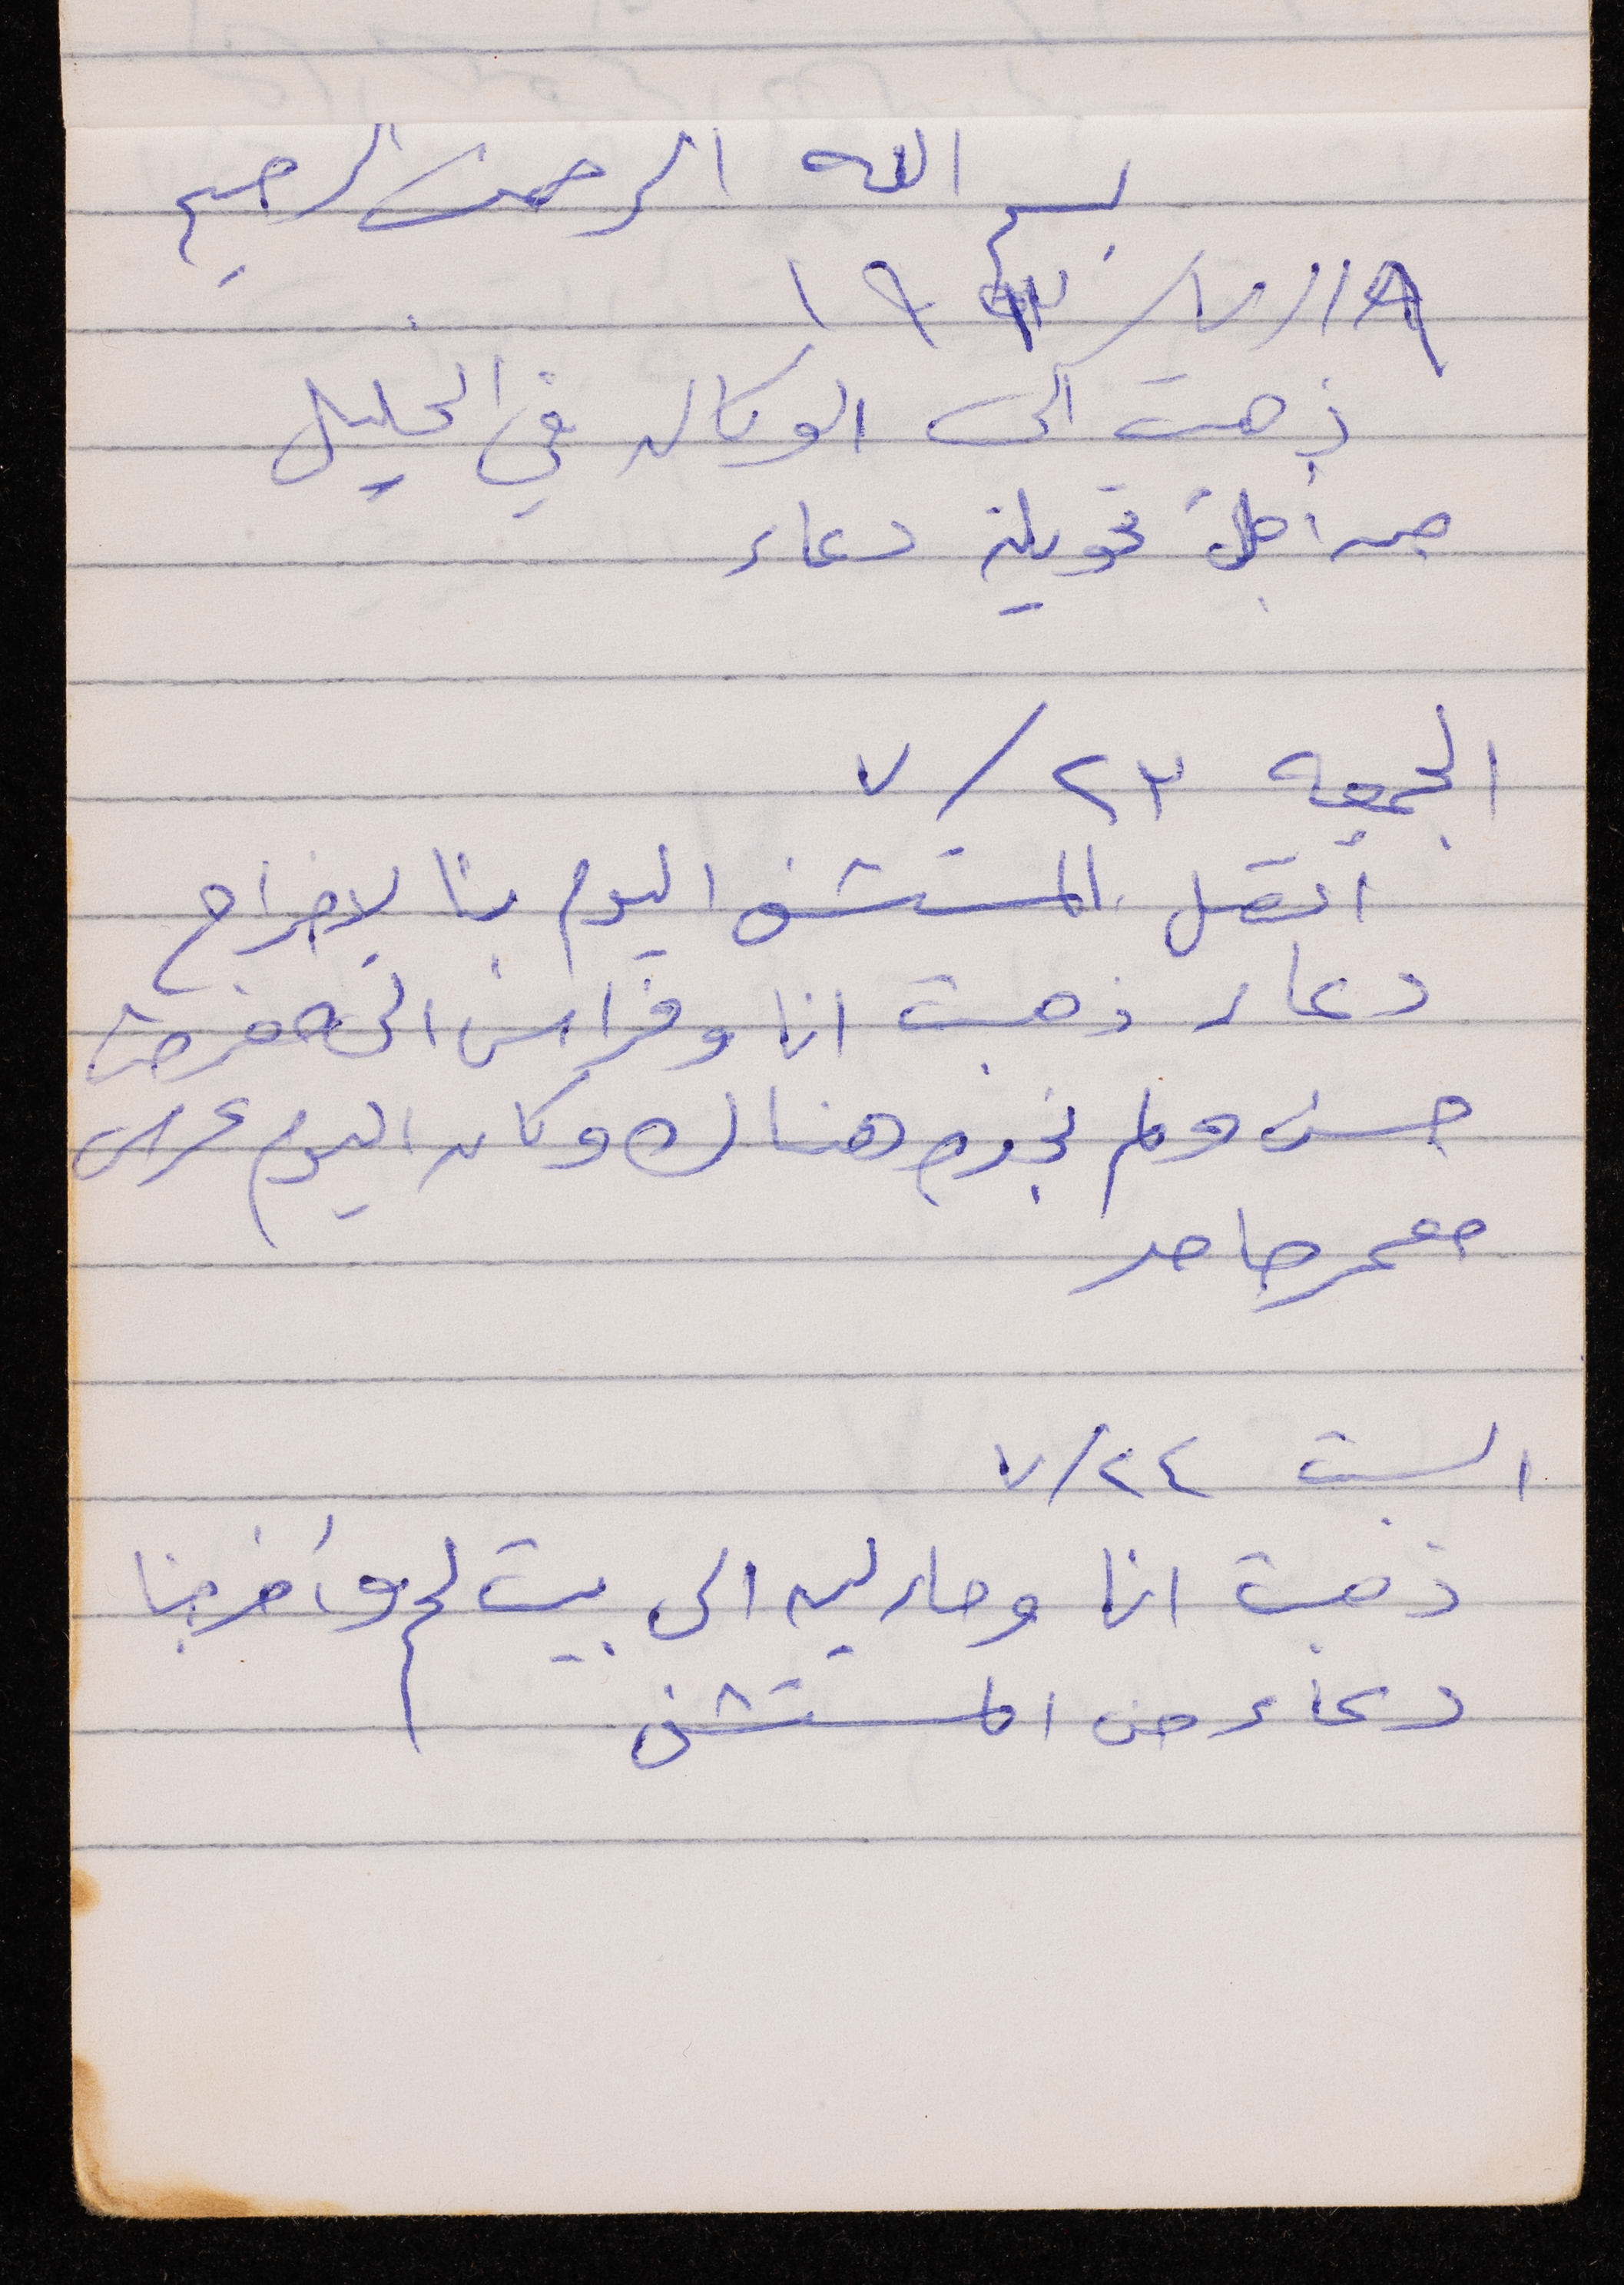 بسم الله الرحمن الرحيم
١٩ / ٧ / ١٩٩٣
ذهبت الى الوكاله في الخليل
من أجل تحويلة دعاء
الجمعه ٢٣ / ٧
أتصل المستشفى اليوم بنا لإخراج
دعاء ذهبت انا وفراس الى مفرمة
حسن ولم نجده هناك وكان اليوم عرس
معمر حامد
السبت ٢٤ / ٧
ذهبت انا وماريه الى بيت لحم وأخرجنا
دعاء من المستشفى